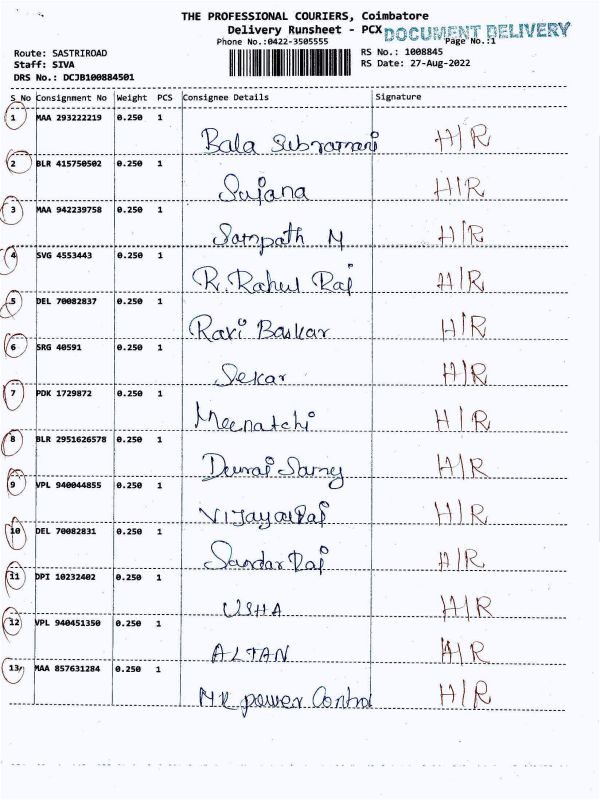 THE PROFESSIONAL COURIERS, Coimbatore
Delivery Runsheet - PCX DOCUMENT DELIVERY
Phone No.:0422-3505555 Page No.:1
Route: SASTRIROAD RS No.: 1008845
Staff: SIVA RS Date: 27-Aug-2022
DRS No.: DCJB100884501
S No Consignment No Weight PCS Consignee Details Signature
1 MAA 293222219 0.250 1
Bala Subramani H/R
2 BLR 415750502 0.250 1
Sujana H/R
3 MAA 942239758 0.250 1
Sampath M H/R
4 SVG 4553443 0.250 1
R. Rahul Raj H/R
5 DEL 70082837 0.250 1
Ravi Baskar H/R
6 SRG 40591 0.250 1
Sekar H/R
7 PDK 1729872 0.250 1
Meenatchi H/R
8 BLR 2951626578 0.250 1
Durai Samy H/R
9 VPL 940044855 0.250 1
Vijayaraj H/R
10 DEL 70082831 0.250 1
Sundar Raj H/R
11 DPI 10232402 0.250 1
USHA H/R
12 VPL 940451350 0.250 1
ALTAN H/R
13 MAA 857631284 0.250 1
MK power Control H/R